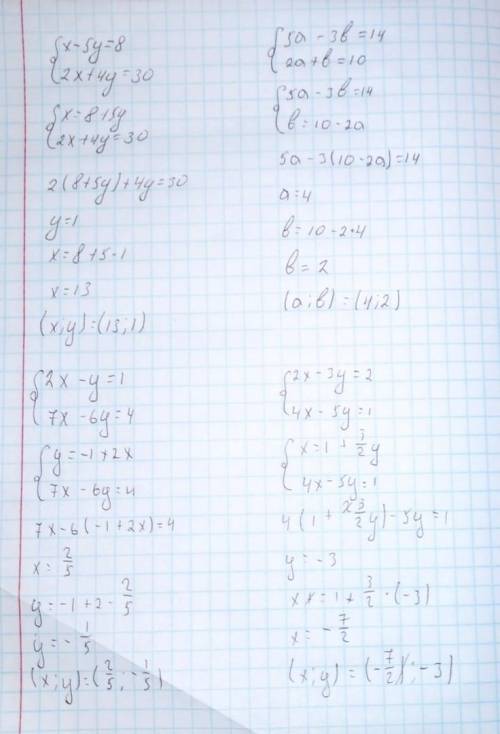 {x-5y=8
{2x+4y=30
{x=8+5y
{2x+4y=30
2(8+5y)+4y=30
y=1
x=8+5·1
x=13
(x;y)=(13;1)
{5a-3b=14
{2a+b=10
{5a-3b=14
{b=10-2a
5a-3(10-2a)=14
a=4
b=10-2·4
b=2
(a;b)=(4;2)
{2x-y=1
{7x-6y=4
{y=-1+2x
{7x-6y=4
7x-6(-1+2x)=4
x=2/5
y=-1+2·2/5
y=-1/5
(x;y)=(2/5;-1/5)
{2x-3y=2
{4x-5y=1
{x=1+3/2y
{4x-5y=1
4(1+3/2y)-5y=1
y=-3
x=1+3/2·(-3)
x=-7/2
(x;y)=(-7/2;-3)